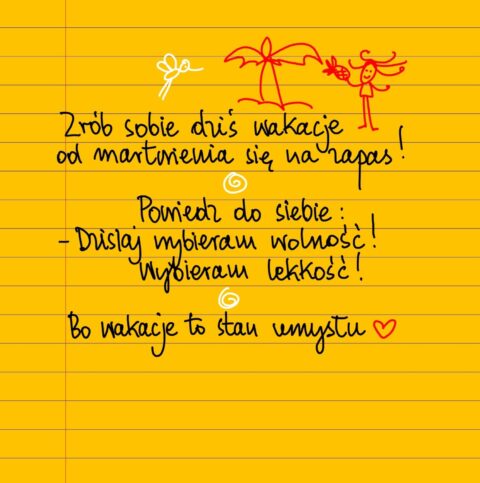 Zrób sobie dziś wakacje
od martwienia się na zapas!
Powiedz do siebie:
- Dzisiaj wybieram wolność!
Wybieram lekkość!
Bo wakacje to stan umysłu